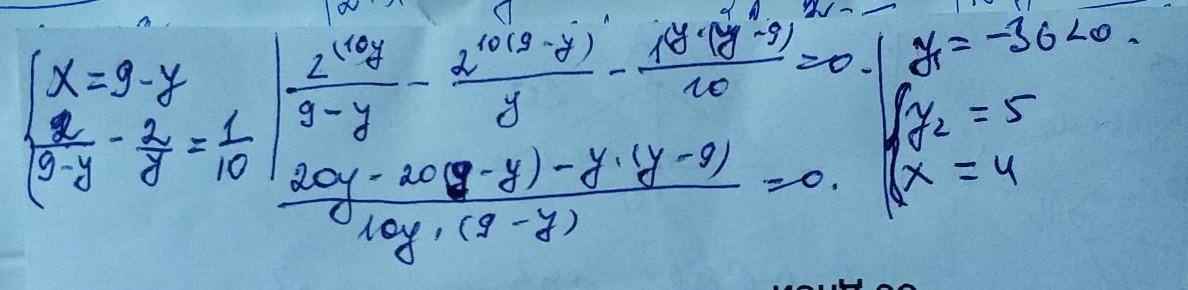 { x = 9 - y
2/(9-y) - 2/y = 1/10
2^(10y/(9-y) - 2^10(9-y)/y - 1^(y·(y-9)/10 = 0.
(20y - 20(9-y) - y·(y-9))/(10y·(9-y)) = 0.
y₁ = -36 < 0.
{ y₂ = 5
x = 4